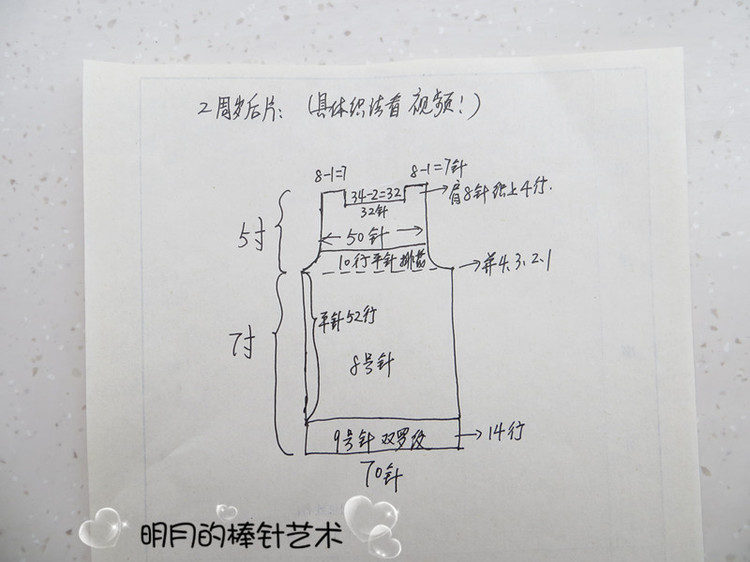 2周岁后片：（具体织法看视频！）
8-1=7
8-1=7针
34-2=32
32针
肩8针织上4行.
5寸
50针
10行平针排花
并4、3、2、1
平针52行
7寸
8号针
9号针 双罗纹
14行
70针
明月的棒针艺术